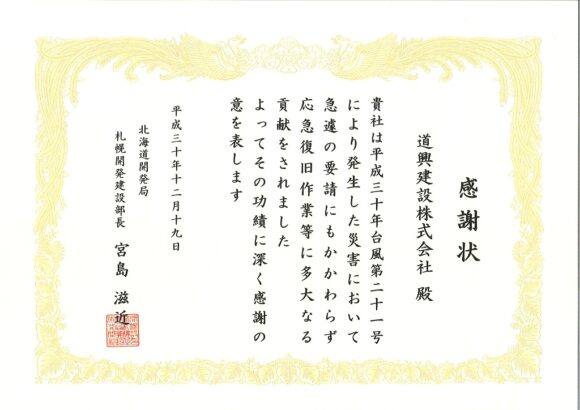 感謝状
道興建設株式会社 殿
貴社は平成三十年台風第二十一号
により発生した災害において
急遽の要請にもかかわらず
応急復旧作業等に多大なる
貢献をされました
よってその功績に深く感謝の
意を表します
平成三十年十二月十九日
北海道開発局
札幌開発建設部長 宮島 滋近